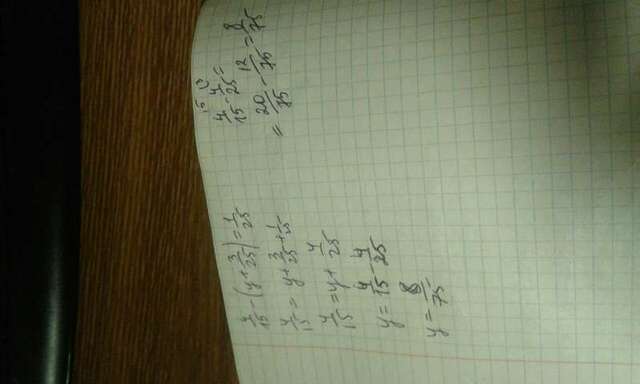 4/15 - (y + 3/25) = 1/25
4/15 = y + 3/25 + 1/25
4/15 = y + 4/25
y = 4/15 - 4/25
y = 8/75
4/15 - 4/25 =
= 20/75 - 12/75 = 8/75